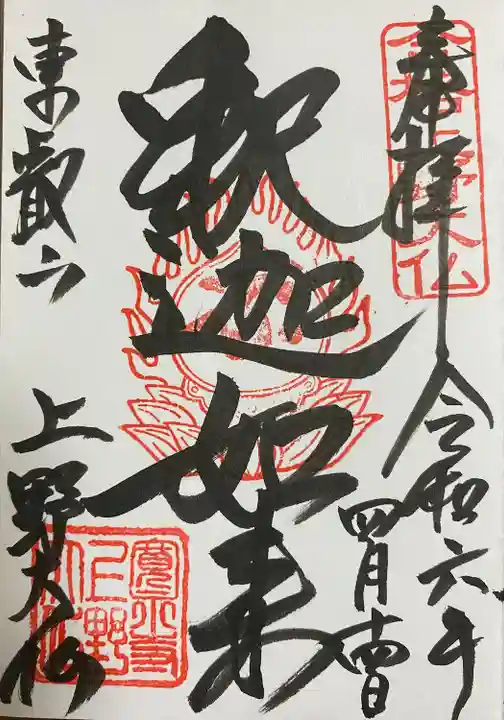 奉拝 令和六年
四月 日
釈迦如来
東叡山 上野大仏
大仏
寛永寺
上野
大仏